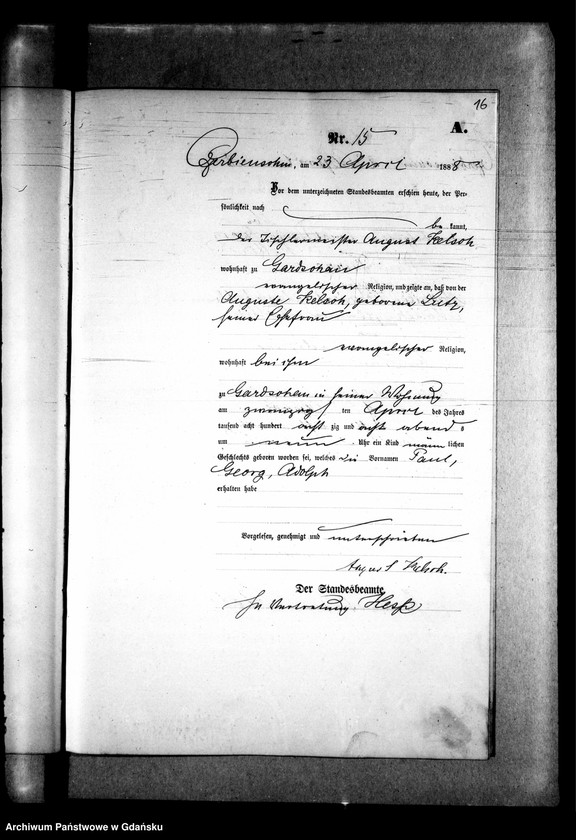 16
A.
Nr. 15
am 23 April 1888
Vor dem unterzeichneten Standesbeamten erschien heute, der Per-
sönlichkeit nach
be kannt,
der Tischlermeister August Kelsch
wohnhaft zu Gardschau
evangelischer Religion, und zeigte an, daß von der
Auguste Kelsch, geborene Lutz,
seiner Ehefrau
evangelischer Religion,
wohnhaft bei ihm
zu Gardschau in seiner Wohnung
am zwanzig ten April des Jahres
tausend acht hundert acht zig und acht abend s
um neun Uhr ein Kind männ lichen
Geschlechts geboren worden sei, welches die Vornamen Paul,
Georg, Adolph
erhalten habe
Vorgelesen, genehmigt und unterschrieben
August Kelsch.
Der Standesbeamte
In Vertretung
Archiwum Państwowe w Gdańsku